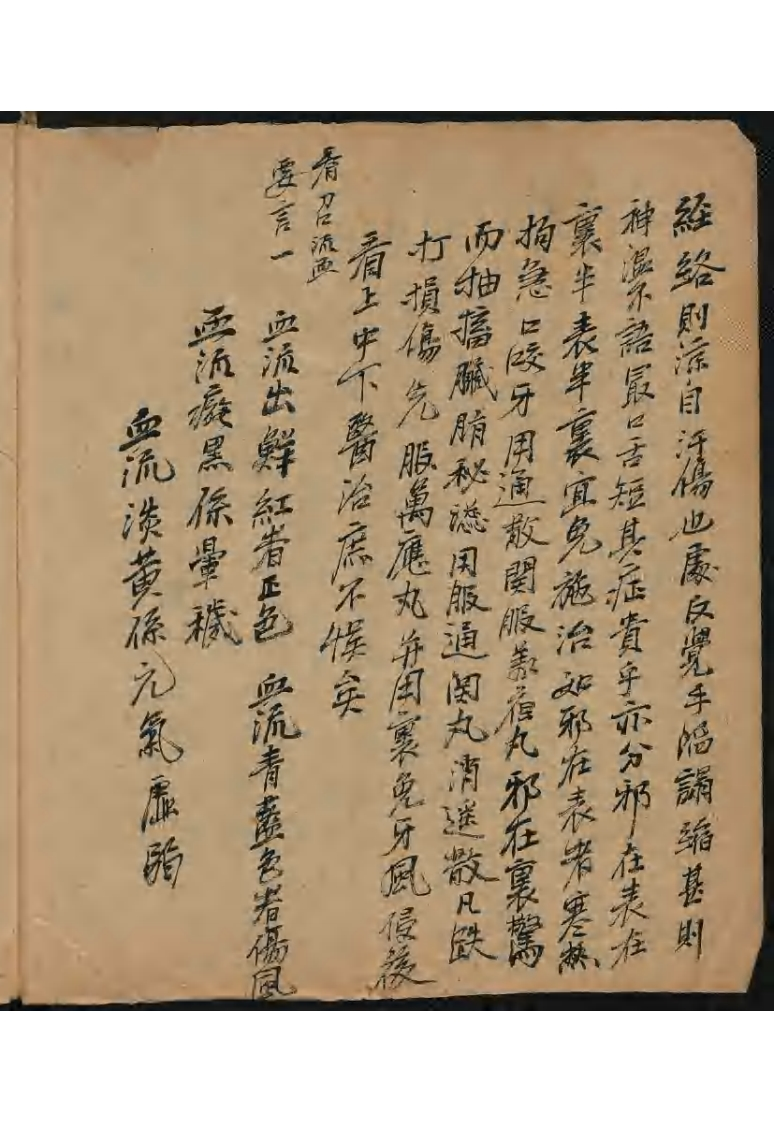 經絡則涼自汗傷也處反覺手陷縮甚則
神溫不語最口舌短其症貴乎亦分邪在表在
裏半表半裏宜免施治如邪在表者寒熱
拘急口咬牙用通散関服丸邪在裏驚
而抽搐臟腑秘用服通関丸消遙散凡跌
打損傷先服萬應丸并用裏免牙風侵後
看上中下醫治庶不悮矣
看召流血
要言一
血流出鮮紅者正色 血流青藍色者傷風
血流癡黑係暈穢
血流淡黄係元氣虛弱